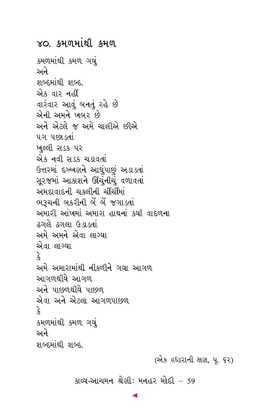 ૪૦. કમળમાંથી કમળ
કમળમાંથી કમળ ગયું
અને
શબ્દમાંથી શબ્દ.
એક વાર નહીં
વારંવાર આવું બનતું રહે છે
એની અમને ખબર છે
અને એટલે જ અમે ચાલીએ છીએ
પગ પછાડતાં
ખુલ્લી સડક પર
એક નવી સડક ચડાવતાં
ઉત્તરમાં દખ્ખણને આઘુંપાછું અડાડતાં
સૂરજમાં આકાશને ઊંચુંનીચું વળાવતાં
અમદાવાદની ચકલીની ચીંચીંમાં
ભરૂચની બકરીની બેં બેં જગાડતાં
અમારી આંખમાં અમારા હાથનાં કર્યાં વાદળના
ઢગલે ઢગલા ઉડાડતાં
અમે અમને એવા લાગ્યા
એવા લાગ્યા
કે
અમે અમારામાંથી નીકળીને ગયા આગળ
આગળથીયે આગળ
અને પાછળથીયે પાછળ
એવા અને એટલા આગળપાછળ
કે
કમળમાંથી કમળ ગયું
અને
શબ્દમાંથી શબ્દ.
(એક વધારાની ક્ષણ, પૃ. ૬૨)
કાવ્ય-આચમન શ્રેણી: મનહર મોદી – 59